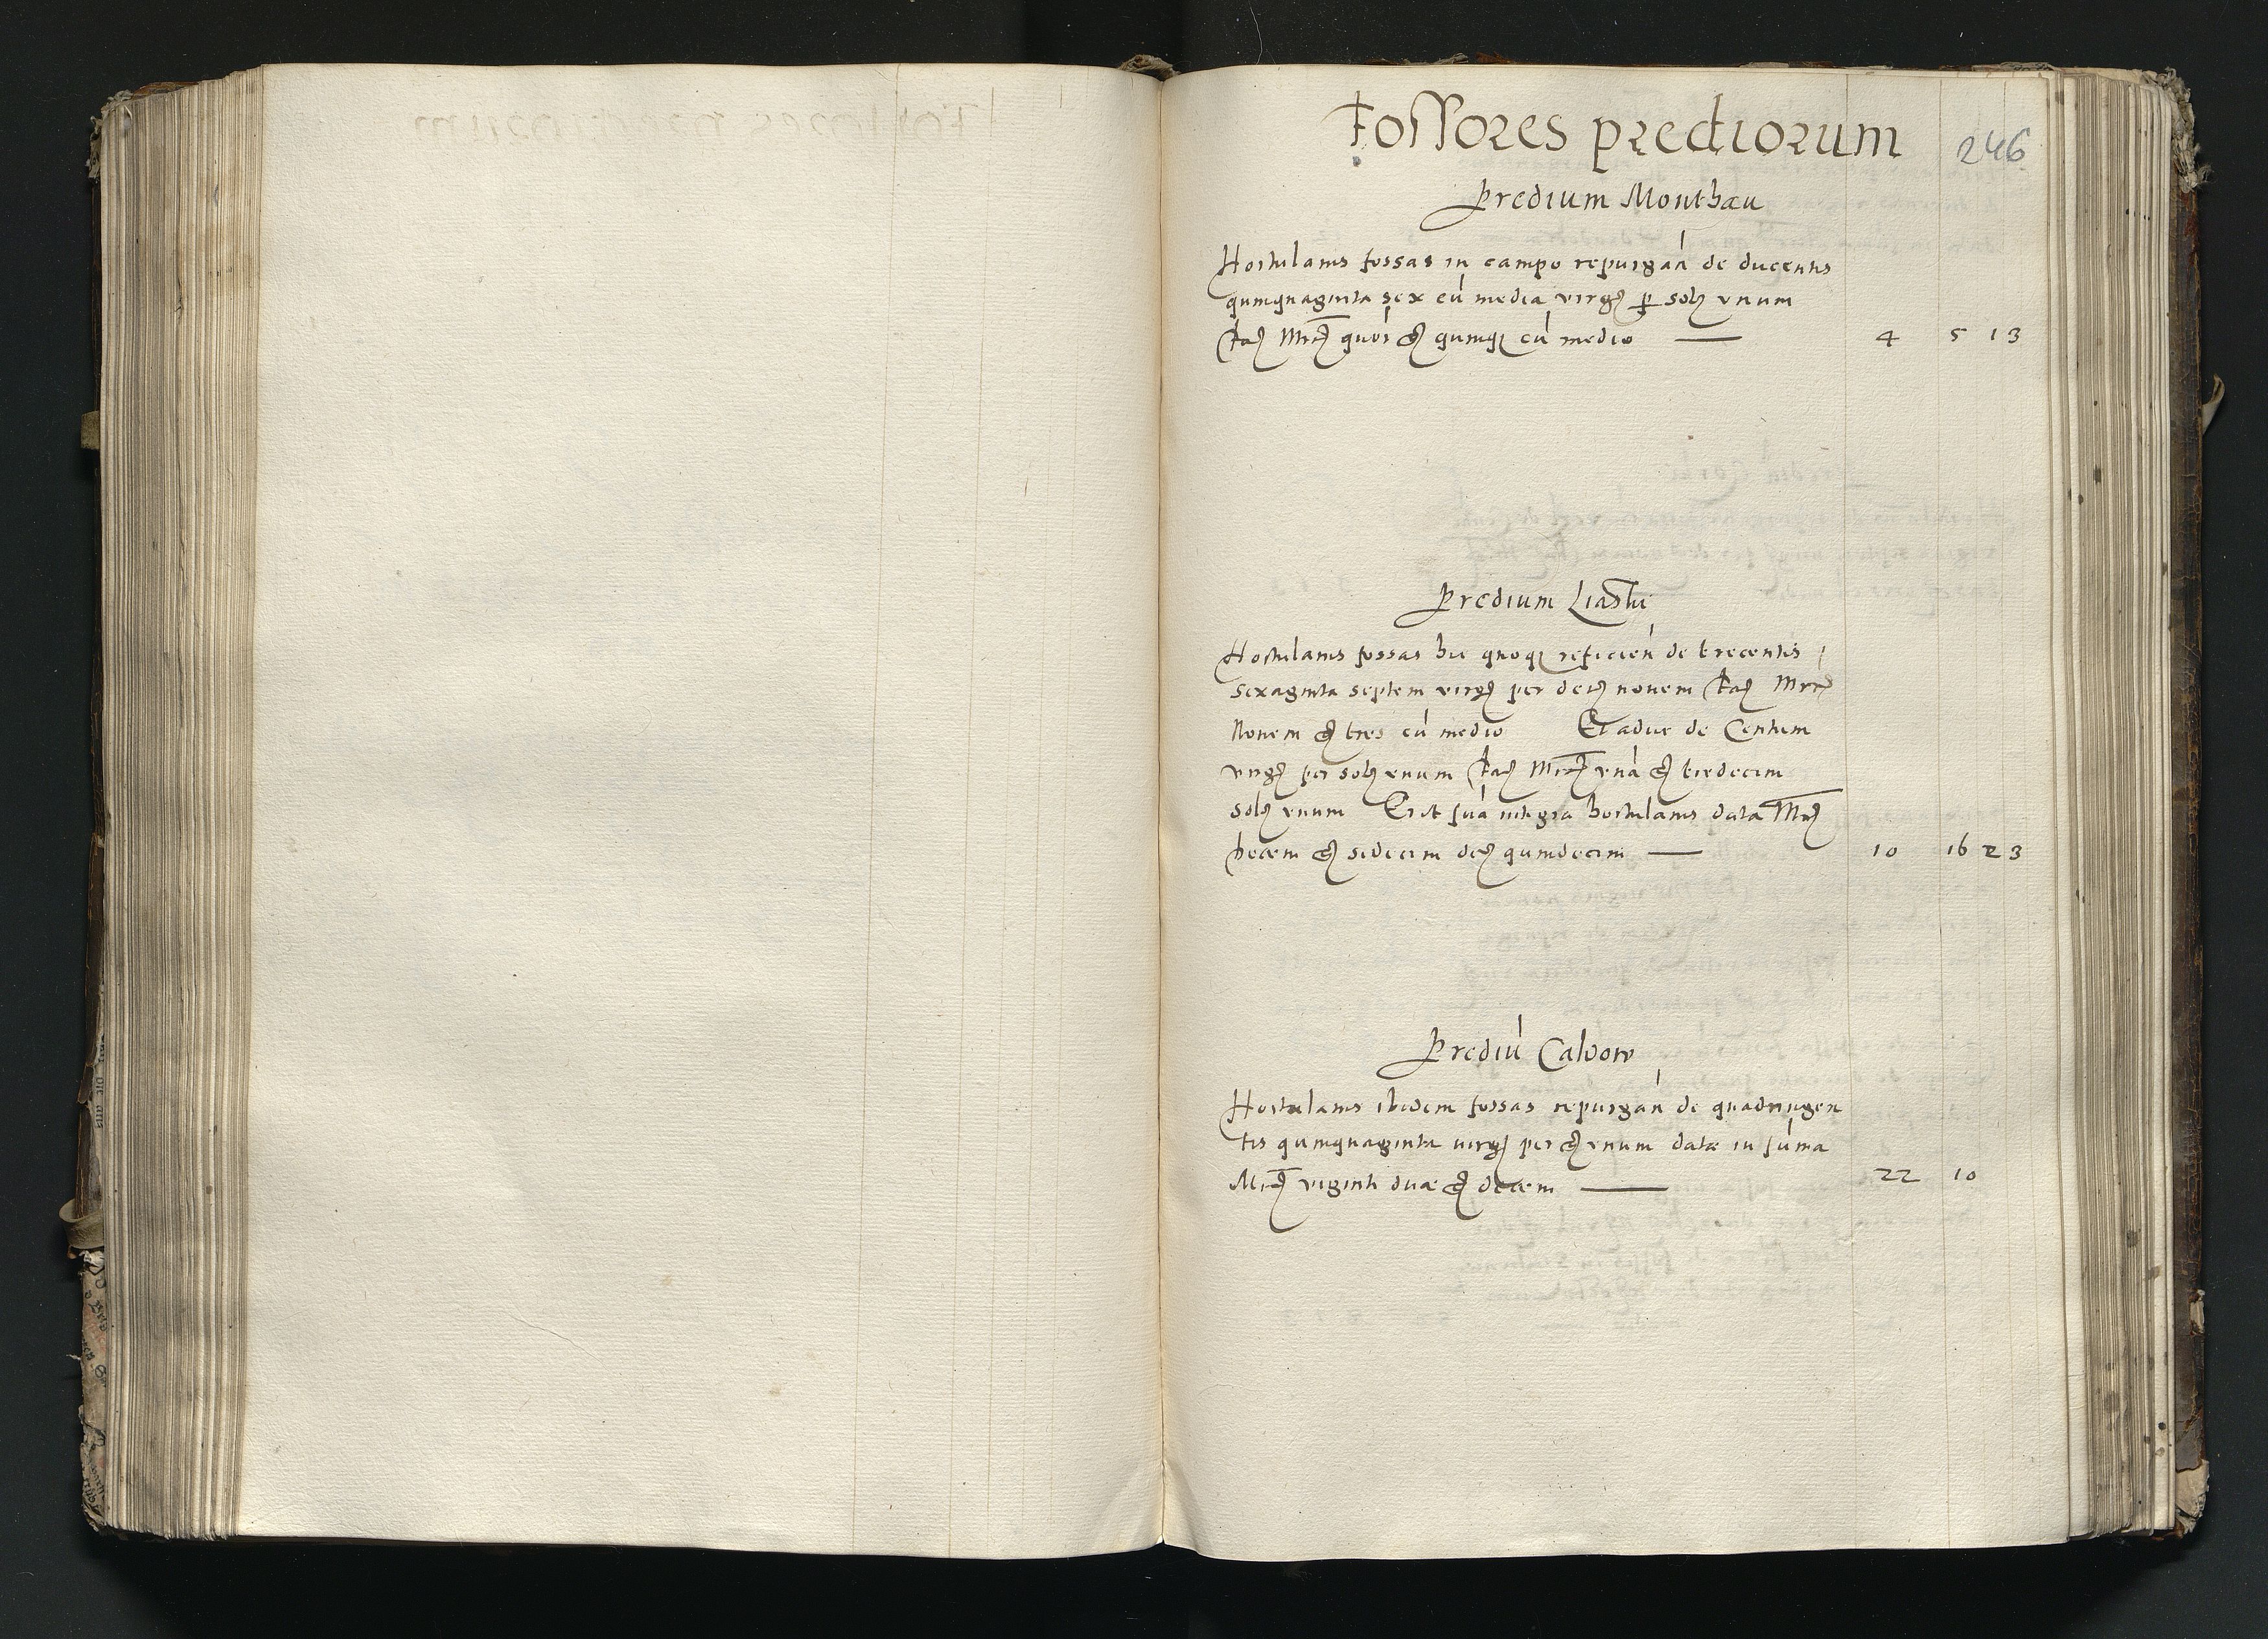 Fossores prediorum 246
Predium Monthau
Hortulanis fossas in campo repurgań de ducentis
quinquaginta sex cú media virgꝭ ꝑ solꝭ vnum
faꝭ Mrcꝭ quoꝛ ꝭ quinqꝫ cú medio — 4 5 1 3
Predium Liastu
Hortulanis fossas hic quoqꝫ reficień de trecentis
sexaginta septem virgꝭ per denꝭ novem faꝭ Mrcꝭ
Novem ꝭ tres cú medio Et adue de Centum
virgꝭ per solꝭ vnum faꝭ Mrcꝭ vná ꝭ tredecim
solꝭ vnum Erit súa integra hortulanis data Mrcꝭ
Decem ꝭ sedecim denꝭ quindecim — 10 16 2 3
Prediú Calvow
Hortulanis ibidem fossas repurgań de quadringen
tis quinquaginta virgꝭ per ꝭ vnum datæ in súma
Mrcꝭ viginti duæ ꝭ decem — 22 10